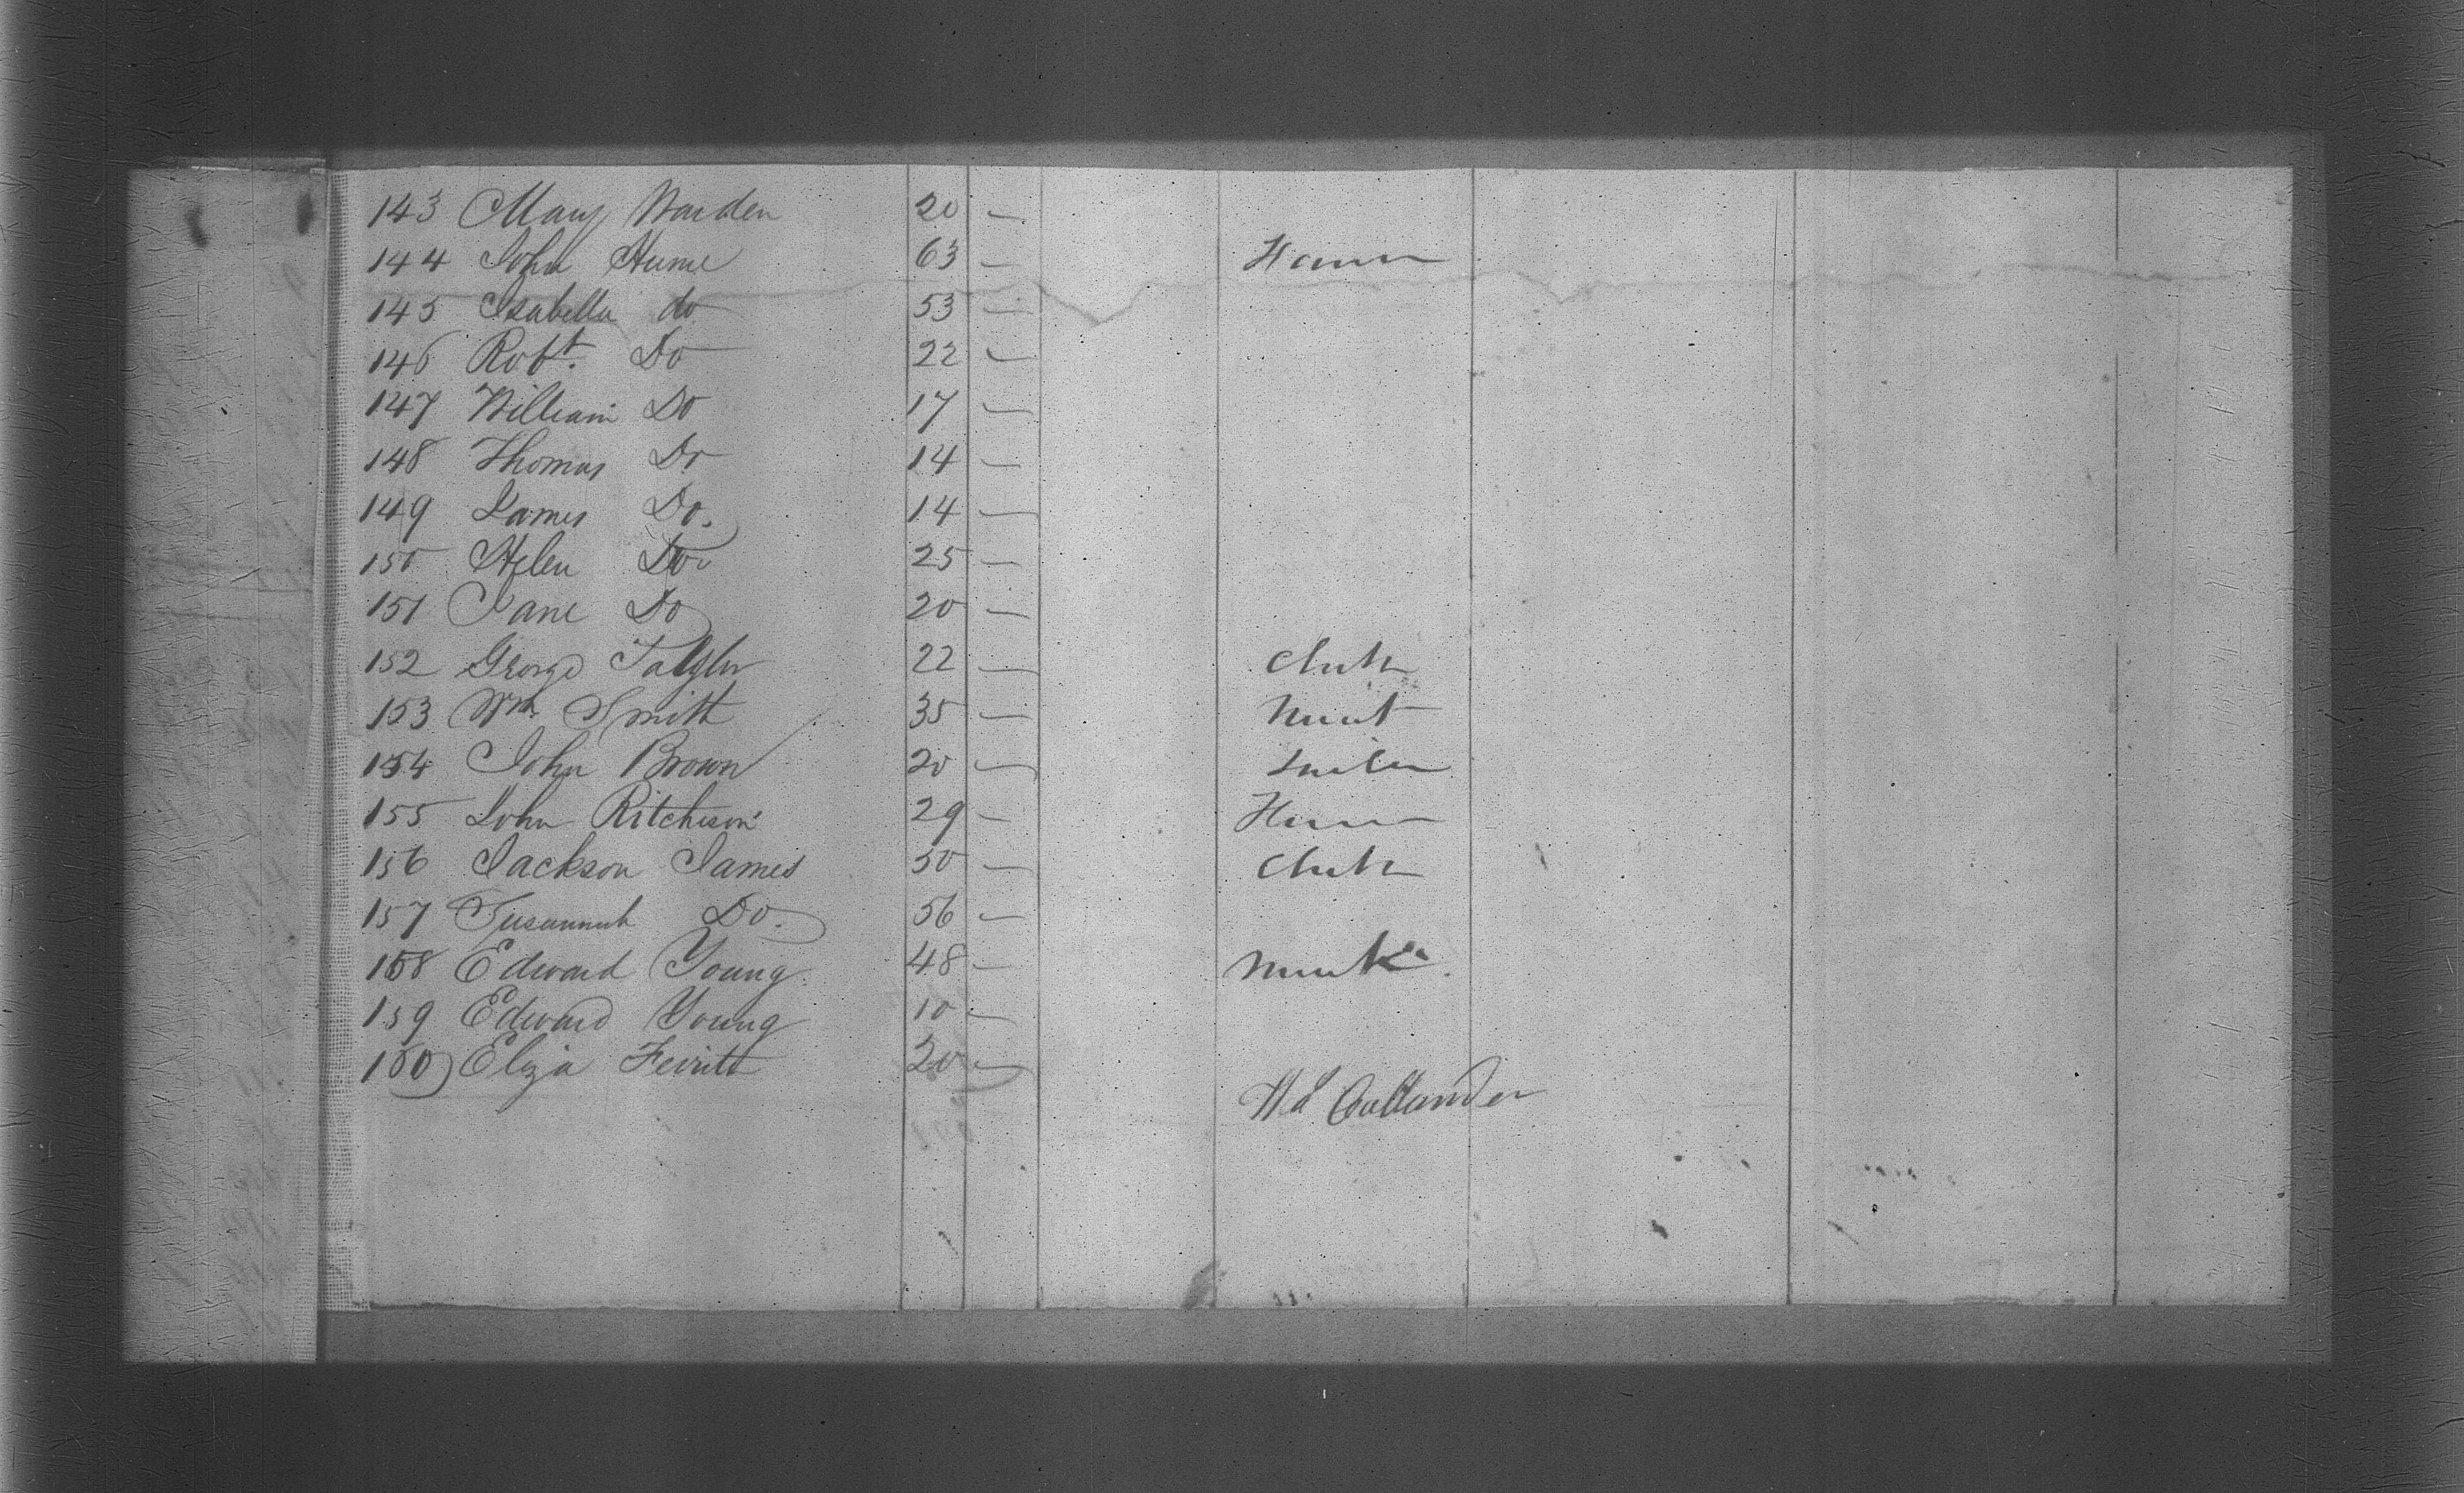 143 Mary Warden 20 —
144 John Hume 63 —
145 Isabella do 53 —
146 Robt. Do 22 —
147 William Do 17 —
148 Thomas Do 14 —
149 James Do. 14 —
150 Helen Do 25 —
151 Jane Do 20 —
152 George 22 —
153 Wm Smith 35 —
154 John Brown 20 —
155 John Ritchison 29 —
156 Jackson James 50 —
157 Susannah Do. 56 —
158 Edward Young 48 —
159 Edward Young 10 —
160 Eliza 20 —